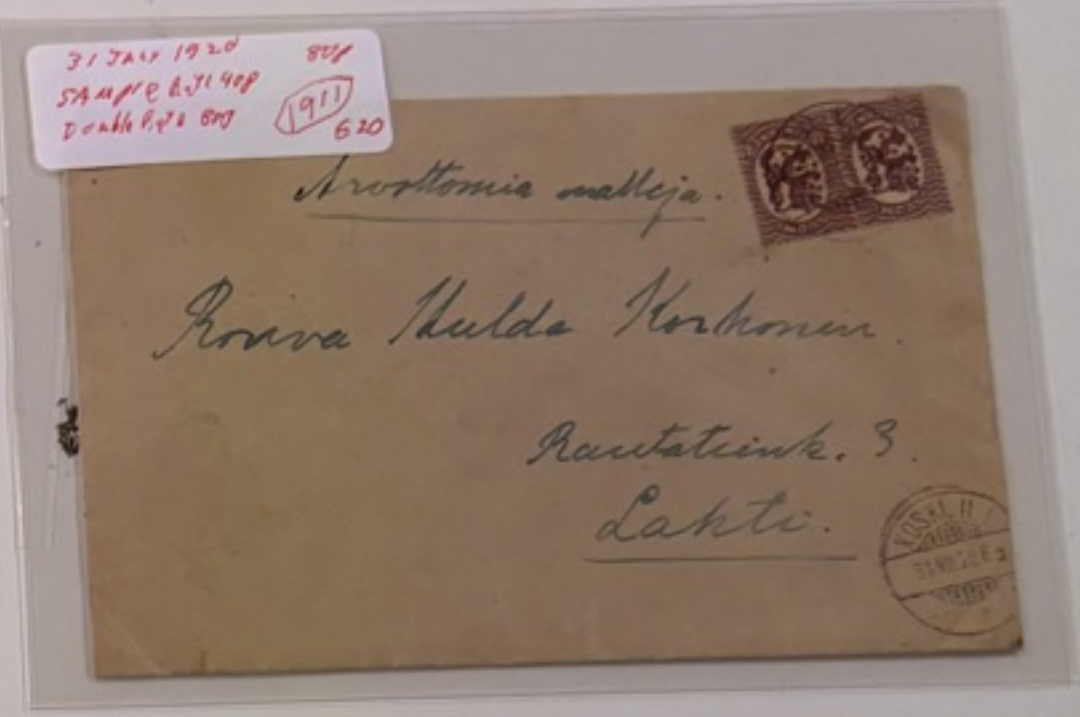 31 JULY 1920 80p
SAMple Rate 40p
Double Rate 80p
1911
G 20
Arvottomia malleja.
Rouva Hulda Korhonen.
Rautatienk. 3.
Lahti.